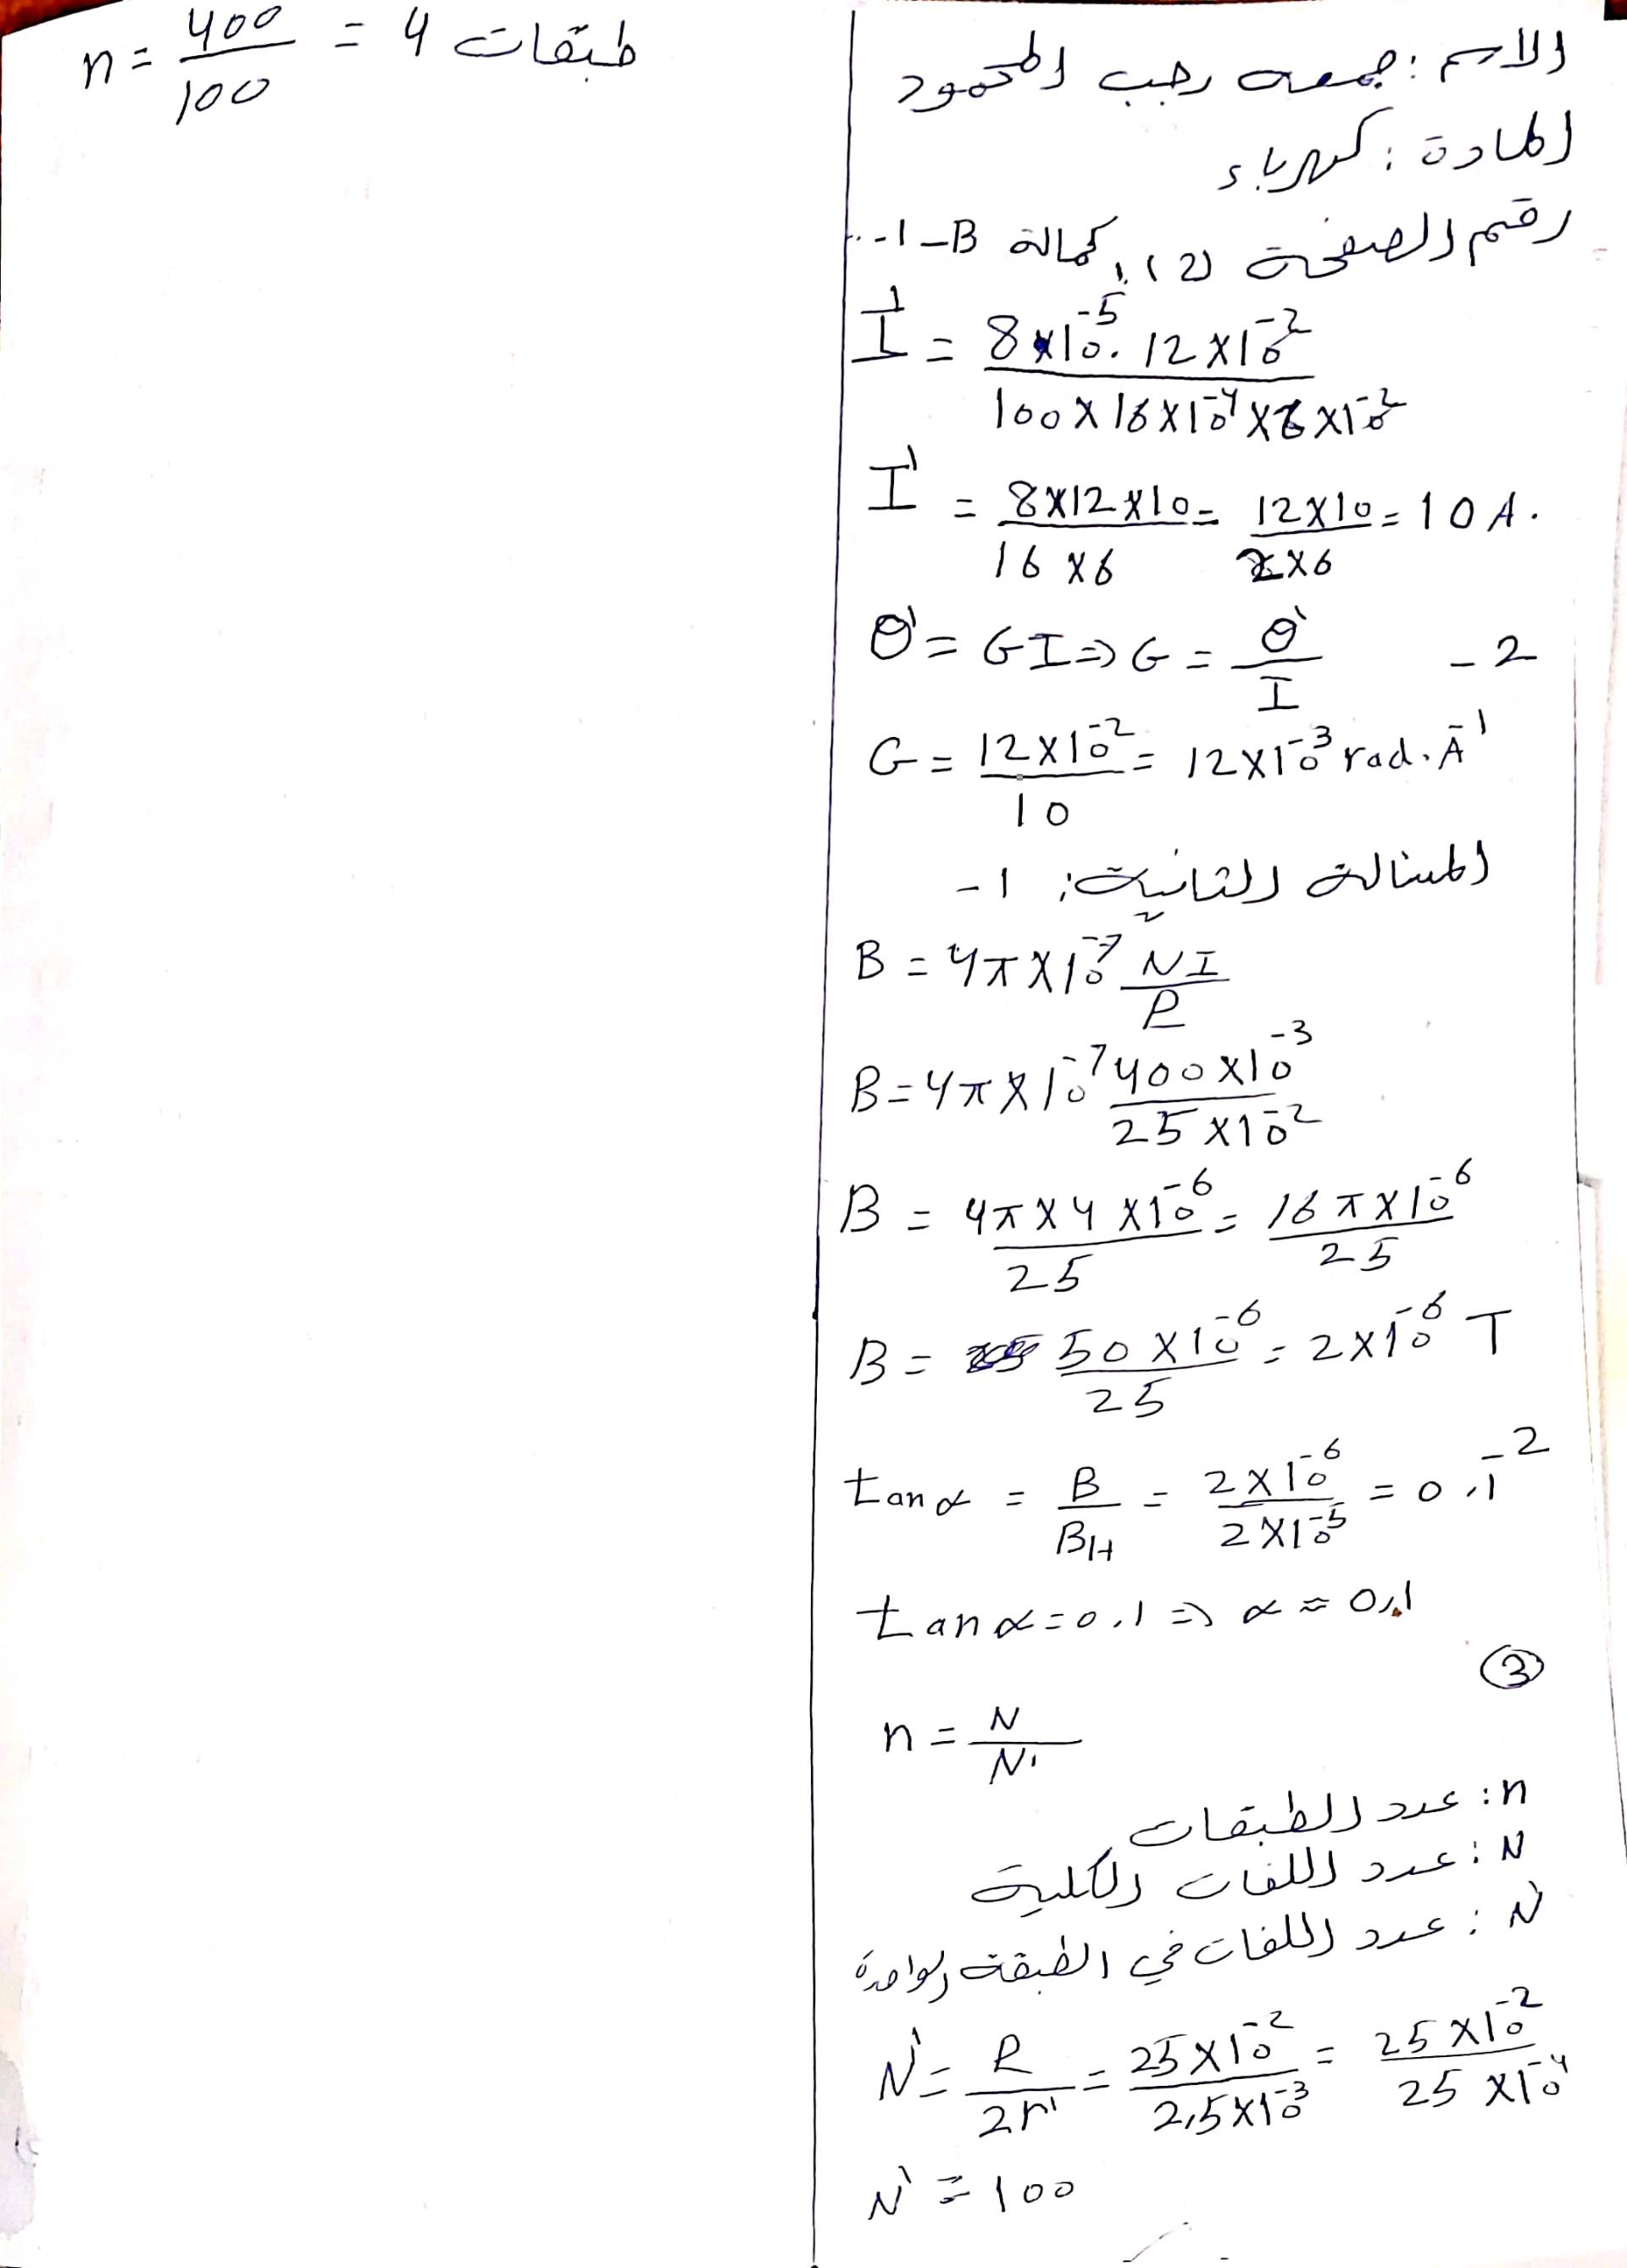 الاسم : جمعه رجب المحمود
المادة : كهرباء
رقم الصفحة (2) , كمالة B-1-..
I' = 8×10^-5 . 12×10^-2 / 100×16×10^-4×6×10^-2
I' = 8×12×10 / 16×6 = 12×10 / 2×6 = 10 A.
θ' = GI ⇒ G = θ' / I -2
G = 12×10^-2 / 10 = 12×10^-3 rad.A^-1
المسألة الثانية: 1-
B = 4π×10^-7 NI / l
B = 4π×10^-7 400×10^-3 / 25×10^-2
B = 4π×4×10^-6 / 25 = 16π×10^-6 / 25
B = 50×10^-6 / 25 = 2×10^-6 T
-2
tan α = B / BH = 2×10^-6 / 2×10^-5 = 0,1
tan α = 0,1 ⇒ α ≈ 0,1
③
n = N / N'
n: عدد الطبقات
N: عدد اللفات الكلية
N': عدد اللفات في الطبقة الواحدة
N' = l / 2r' = 25×10^-2 / 2,5×10^-3 = 25×10^-2 / 25×10^-4
N' = 100
n = 400 / 100 = 4 طبقات